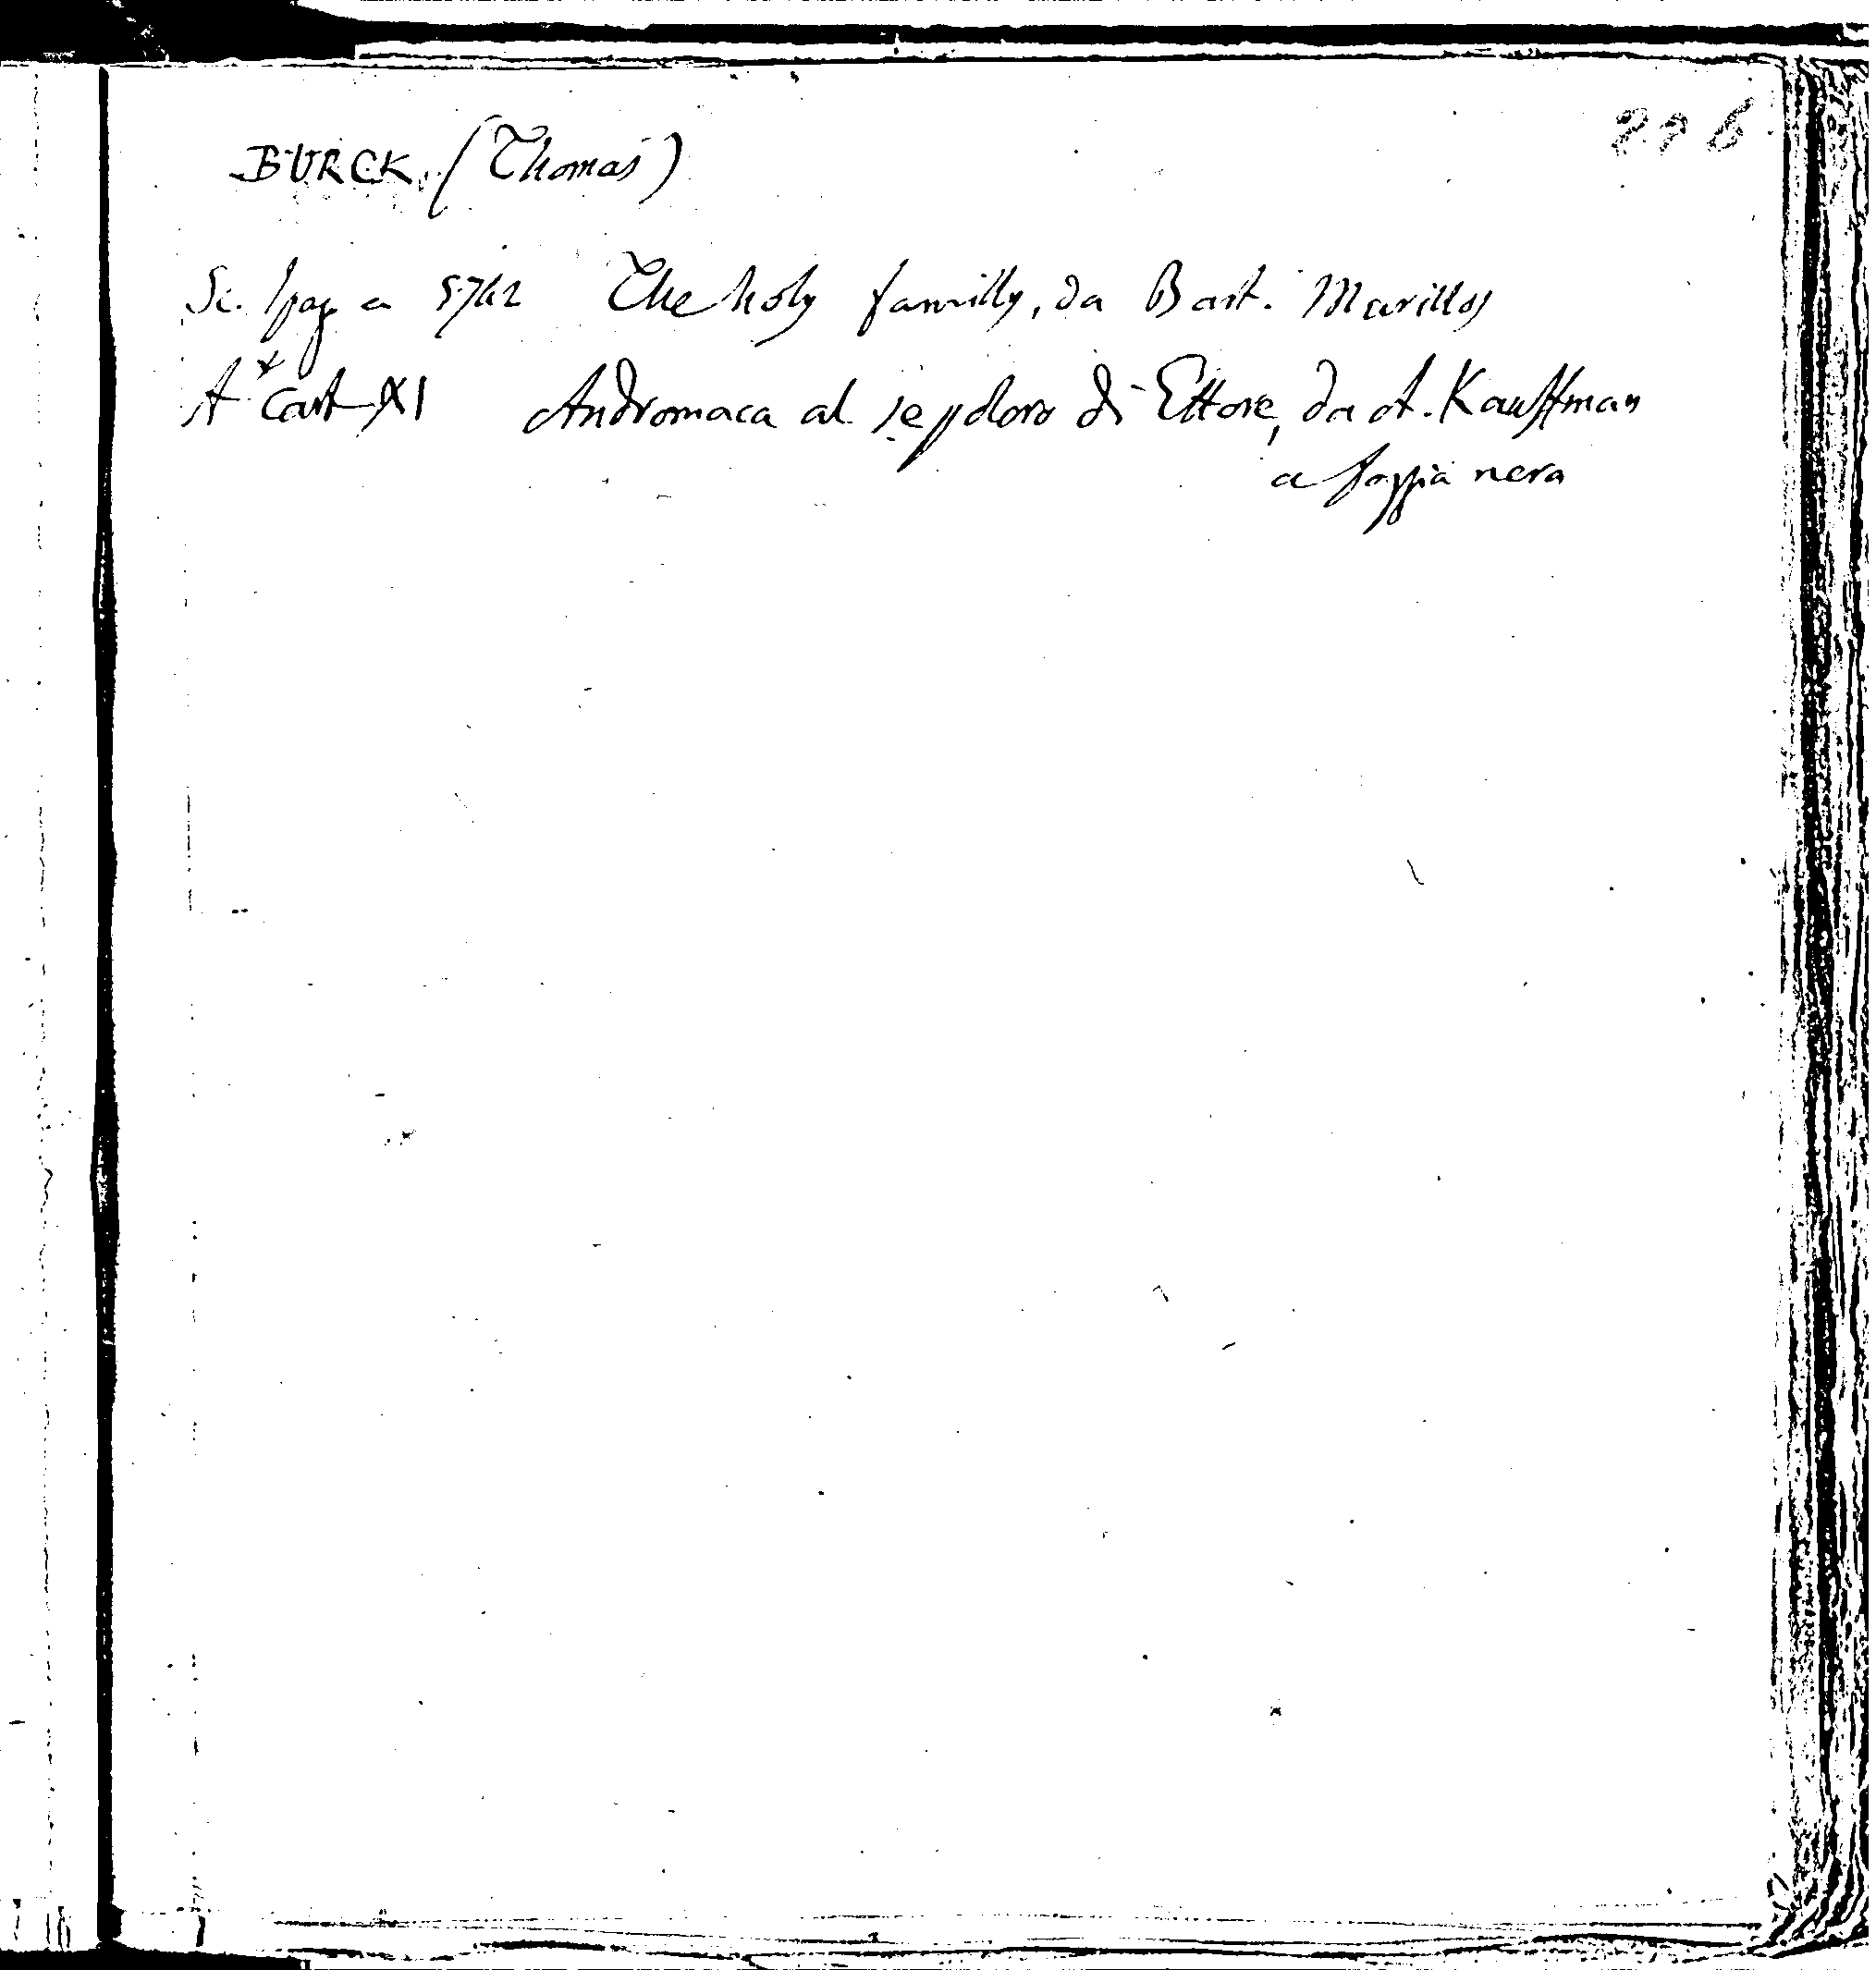 226
BURCK (Thomas)
Sc. Spag a 5742 The holy familly, da Bart. Murillos
A* Cart XI Andromaca al sepolcro di Ettore, da A. Kauffman
a foggia nera